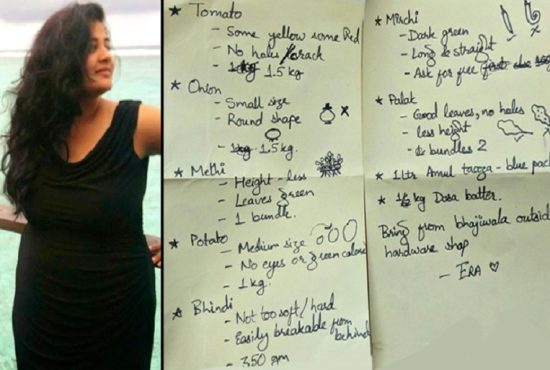 ★ Tomato
- Some yellow some Red
- No holes/crack
- 1.5 kg
★ Onion
- Small size
- Round shape
- 1.5 kg.
★ Methi
- Height - less
- Leaves green
- 1 bundle.
★ Potato
- Medium size
- No eyes or green colored
- 1 kg.
★ Bhindi
- Not too soft / hard
- Easily breakable from behind
- 350 gm
★ Mirchi
- Dark green
- Long & straight
- Ask for free
★ Palak
- Good leaves, no holes
- less height
- bundles 2
★ 1 ltr Amul taaza - blue
★ kg Dosa batter.
Bring from bhajiwala outside
hardware shop
- ERA ♡